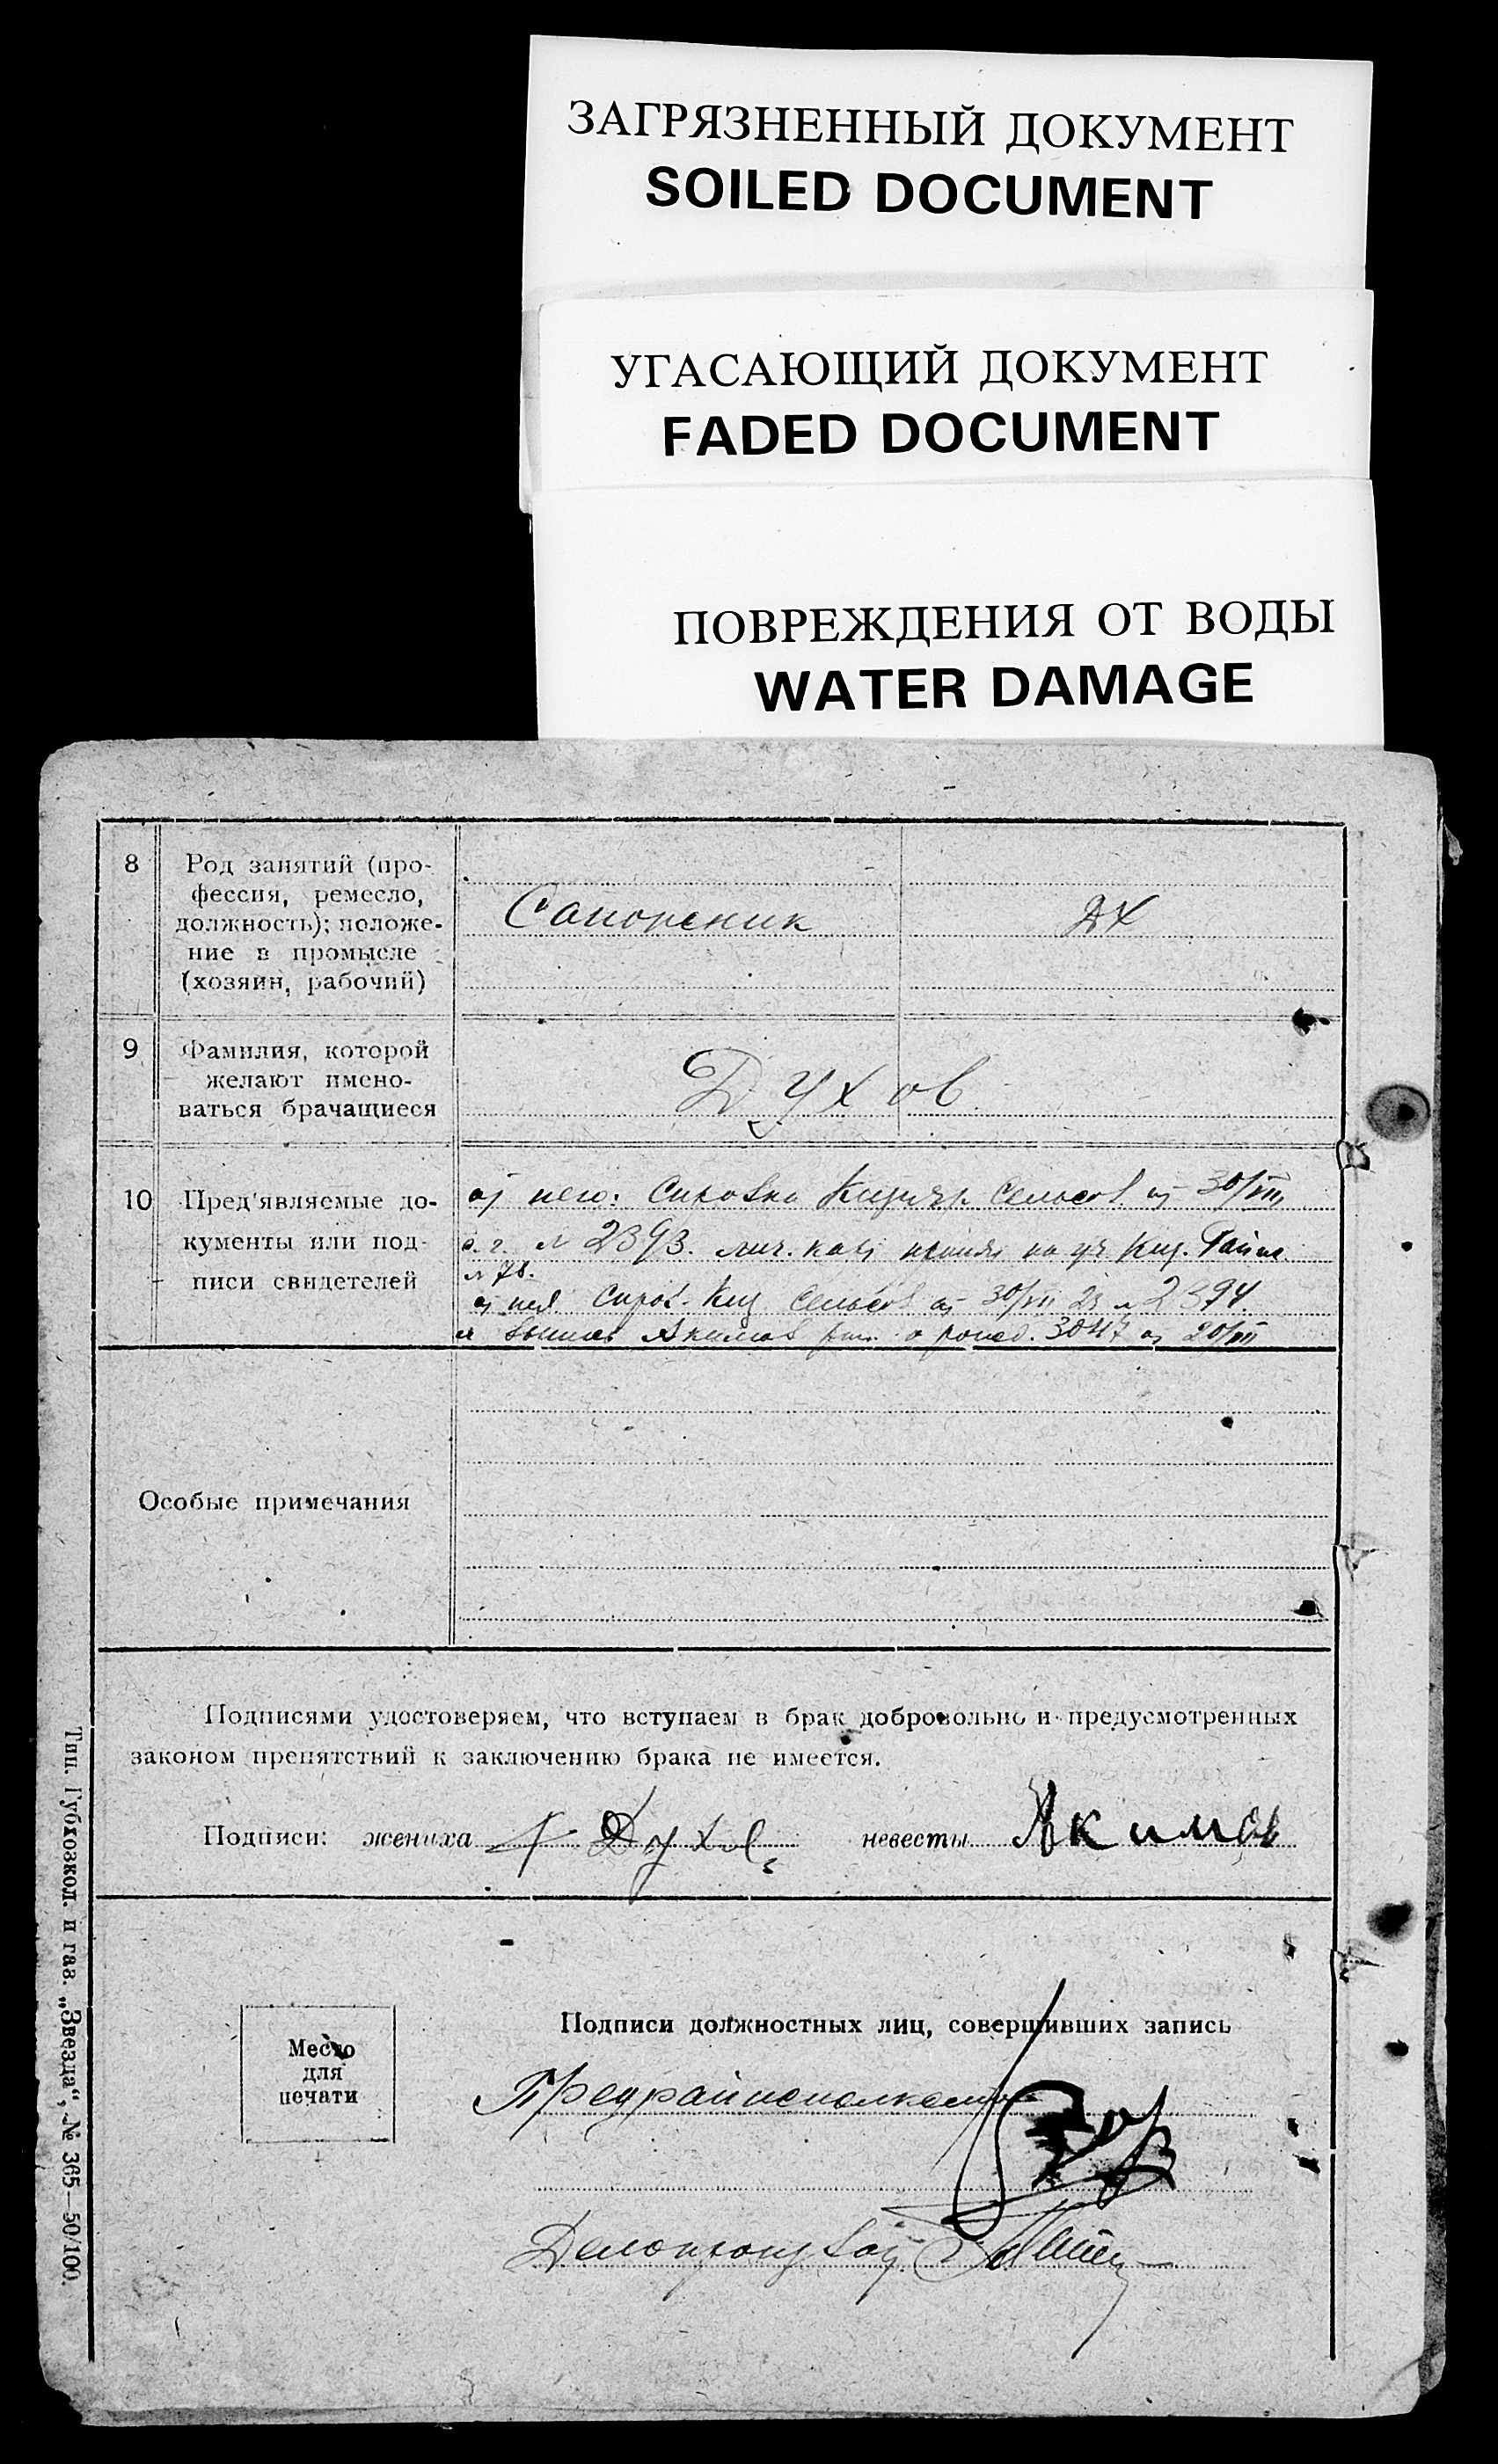 ЗАГРЯЗНЕННЫЙ ДОКУМЕНТ
SOILED DOCUMENT
УГАСАЮЩИЙ ДОКУМЕНТ
FADED DOCUMENT
ПОВРЕЖДЕНИЯ ОТ ВОДЫ
WATER DAMAGE
8
Род занятий (про-
фессия, ремесло,
должность); положе-
ние в промысле
(хозяин, рабочий)
Сапожник
ДХ
9
Фамилия, которой
желают имено-
ваться брачащиеся
Духов
10
Пред'являемые до-
кументы или под-
писи свидетелей
от него: Справка сельсов. от 30/VIII
с. г. № 2393. на уч.
№ 78.
от нея Справ. сельсов от 30/VIII № 2394.
и Акимов 3047 от 20/VIII
Особые примечания
Подписями удостоверяем, что вступаем в брак добровольно и предусмотренных
законом препятствий к заключению брака не имеется.
Подписи: жениха Духов невесты Акимов
Место
для
печати
Подписи должностных лиц, совершивших запись
Предрайисполкома
Делопроизвод
Тип. Губхозкол. и газ. „Звезда“, № 365—50/100.